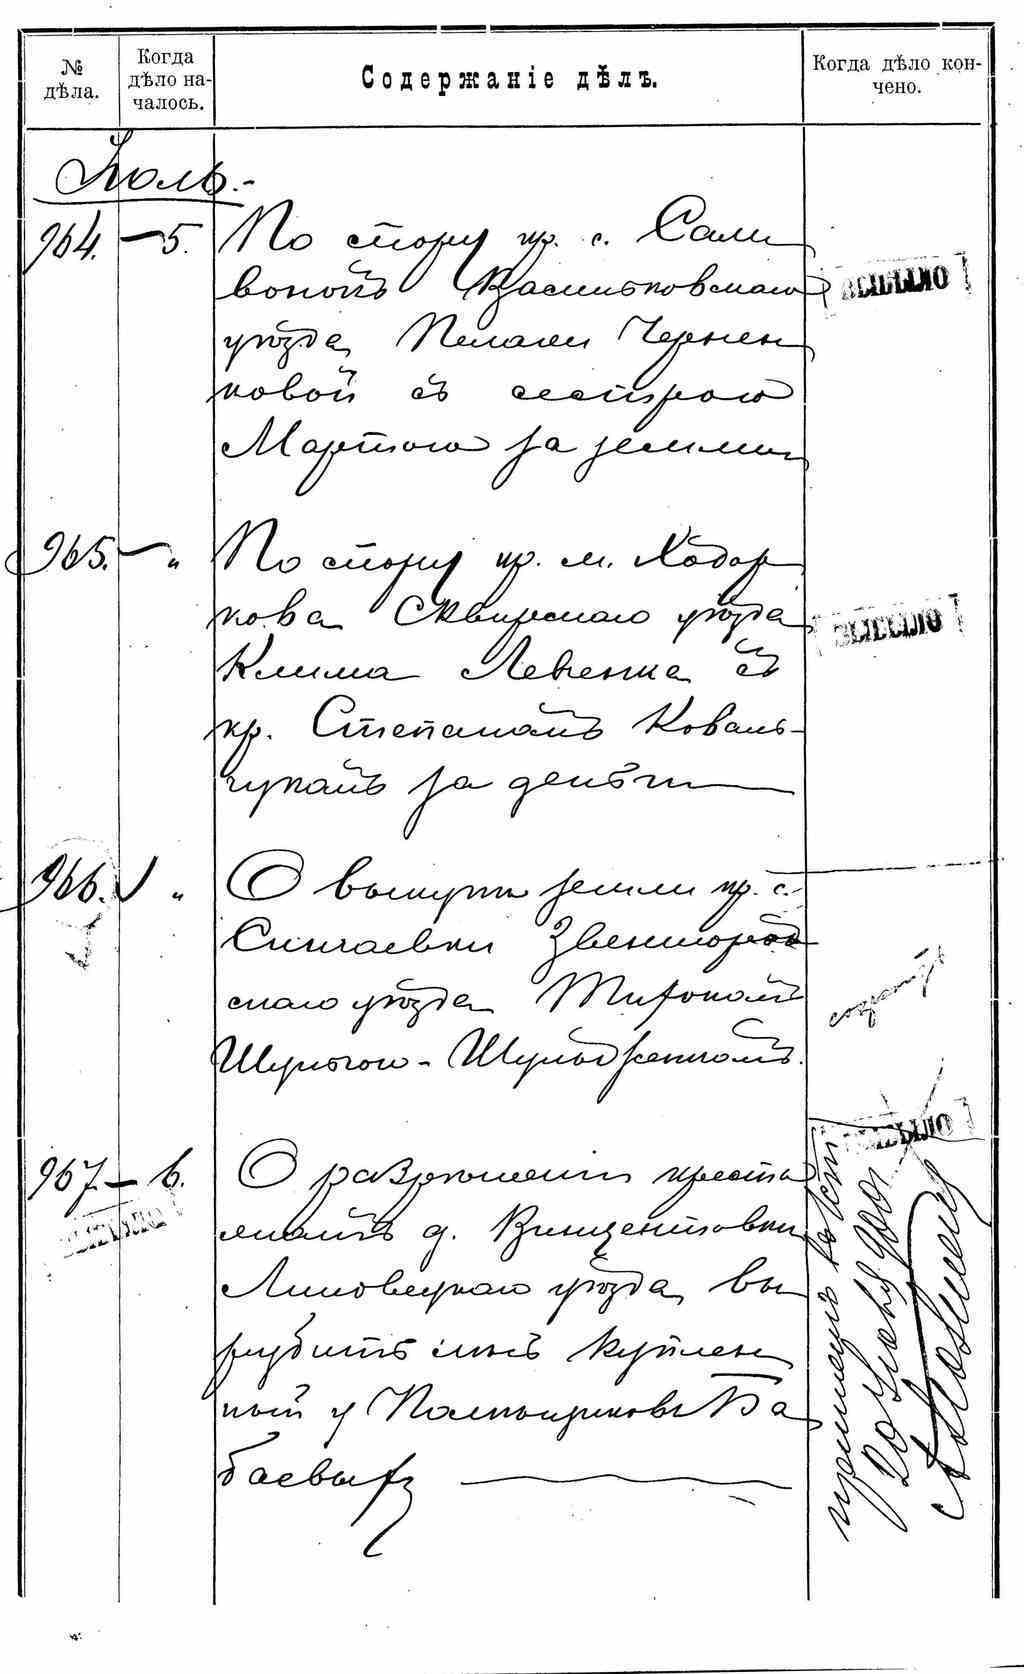 № дѣла.
Когда дѣло на-
чалось.
Содержаніе дѣлъ.
Когда дѣло кон-
чено.
Іюль.-
964. — 5. По спору кр. с. Сали
вонокъ Васильковскаго
уѣзда Пелагеи Чернен
ковой съ сестрою
Марѳою за землю
965. — „ По спору кр. м. Ходор
кова Сквирскаго уѣзда
Клима Левченка съ
кр. Степаномъ Коваль-
чукомъ за деньги
966. „ О выкупѣ земли кр. с.
Звенигород
скаго уѣзда
Шульгою-
967. — 6. О разрѣшеніи кресть
янамъ д. Винцентовки
Липовецкаго уѣзда вы
рубить лѣсъ куплен
ный у Помѣщиковъ Ба
баевыхъ